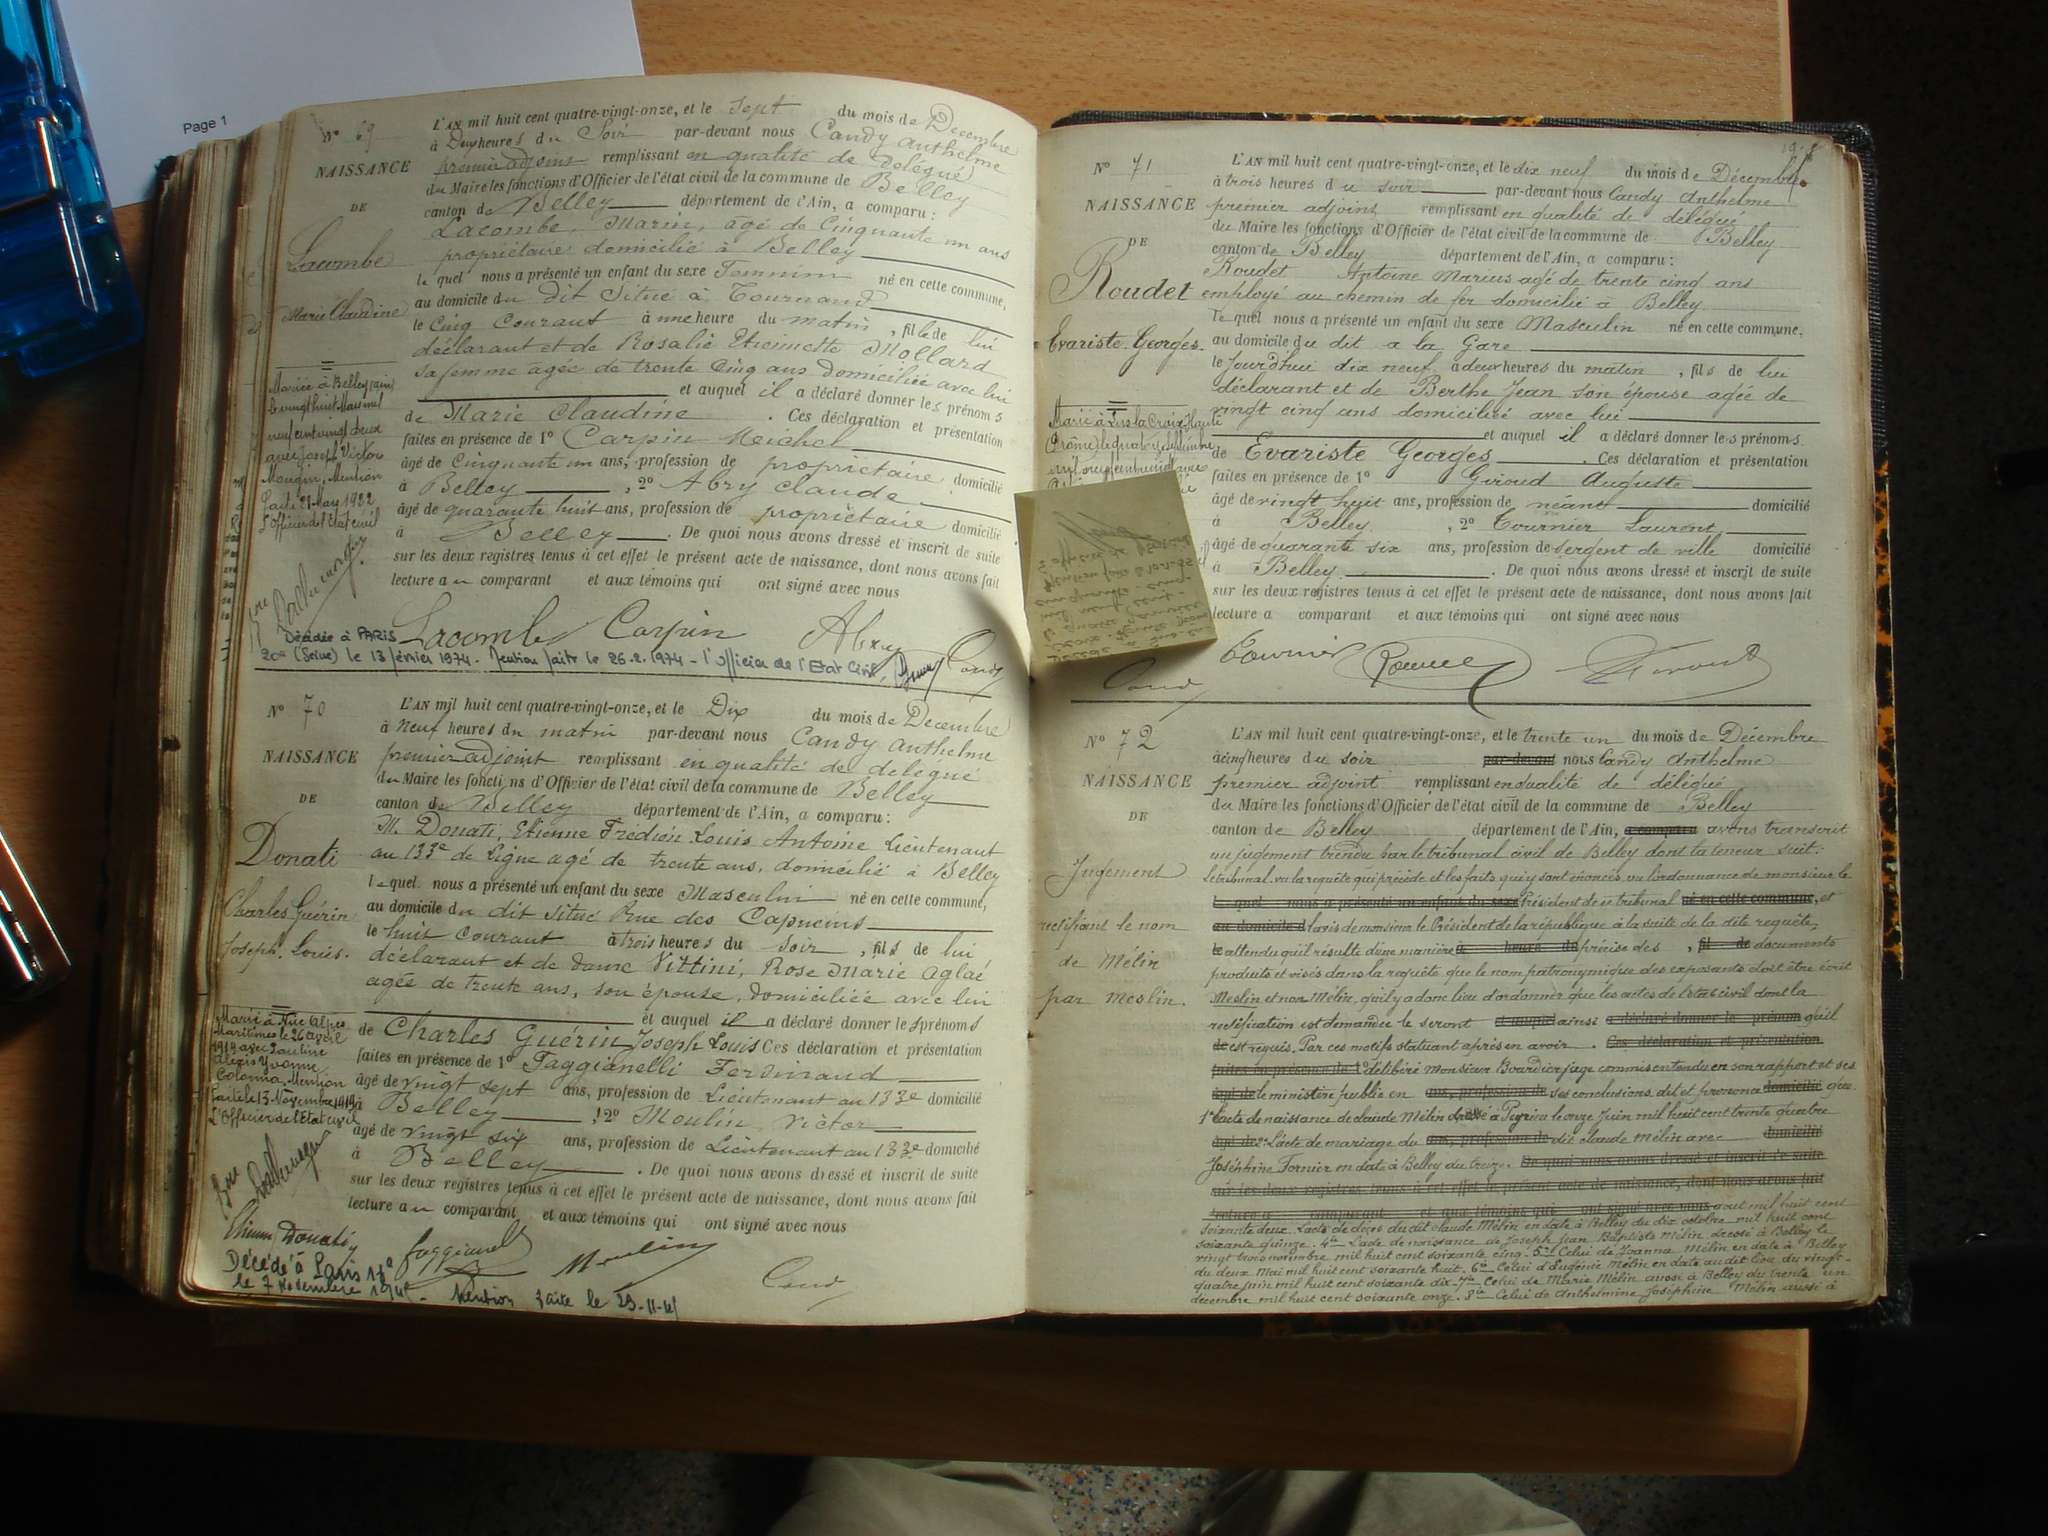 Page 1
N° 69
NAISSANCE
DE
Lacombe
Marie Claudine
L'AN mil huit cent quatre-vingt-onze, et le Sept du mois de Decembre
à Deux heures du Soir par-devant nous Candy Anthelme
premier adjoint remplissant en qualité de délégué
du Maire les fonctions d'Officier de l'état civil de la commune de Belley
canton de Belley département de l'Ain, a comparu :
Lacombe, Marin, agé de Cinquante un ans
propriétaire domicilié à Belley
le quel nous a présenté un enfant du sexe Feminin né en cette commune,
au domicile du dit Situé à
le Cinq Courant à une heure du matin, fille de lui
déclarant et de Rosalie Etiennette Mollard
sa femme agée de trente Cinq ans domiciliée avec lui
et auquel il a déclaré donner les prénoms
de Marie Claudine. Ces déclaration et présentation
faites en présence de 1° Carpin Michel
âgé de Cinquante un ans, profession de propriétaire domicilié
à Belley, 2° Abry Claude
âgé de quarante huit ans, profession de propriétaire domicilié
à Belley. De quoi nous avons dressé et inscrit de suite
sur les deux registres tenus à cet effet le présent acte de naissance, dont nous avons fait
lecture au comparant et aux témoins qui ont signé avec nous
Mariée à Belley (ain)
le vingt huit Mai mil
neuf cent vingt deux
avec Joseph Victor
Mougin, Mention
faite 29 May 1922
L'Officier de l'Etat civil
Lacombe Carpin Abry Candy
Décédée à PARIS
20e (Seine) le 13 février 1974 - Mention faite le 26.2.1974 - l'Officier de l'Etat Civil,
N° 70
NAISSANCE
DE
Donati
Charles Guérin
Joseph. Louis.
L'AN mil huit cent quatre-vingt-onze, et le Dix du mois de Decembre
à Neuf heures du matin par-devant nous Candy Anthelme
premier adjoint remplissant en qualité de délégué
du Maire les fonctions d'Officier de l'état civil de la commune de Belley
canton de Belley département de l'Ain, a comparu :
M. Donati, Etienne Frédion Louis Antoine Lieutenant
au 133e de Ligne agé de trente ans, domicilié à Belley
le quel nous a présenté un enfant du sexe Masculin né en cette commune,
au domicile du dit situé Rue des Capucins
le huit Courant à trois heures du soir, fils de lui
déclarant et de dame Vittini, Rose Marie Aglaé
agée de trente ans, son épouse, domiciliée avec lui
et auquel il a déclaré donner les prénoms
de Charles Guérin Joseph Louis Ces déclaration et présentation
faites en présence de 1° Faggianelli Ferdinand
âgé de vingt sept ans, profession de Lieutenant au 133e domicilié
à Belley, 2° Moulin Victor
âgé de vingt six ans, profession de Lieutenant au 133e domicilié
à Belley. De quoi nous avons dressé et inscrit de suite
sur les deux registres tenus à cet effet le présent acte de naissance, dont nous avons fait
lecture au comparant et aux témoins qui ont signé avec nous
Marié à Nice Alpes
Maritimes le 26 avril
1919 avec Pauline
Alexis Yvonne
Colonna, Mention
faite le 13 Novembre 1919
L'Officier de l'Etat civil
Etienne Donati Faggianelli Moulin Candy
Décédé à Paris
le 7 Novembre - Mention faite le
N° 71
NAISSANCE
DE
Roudet
Evariste. Georges.
L'AN mil huit cent quatre-vingt-onze, et le dix neuf du mois de Décembre
à trois heures du soir par-devant nous Candy Anthelme
premier adjoint remplissant en qualité de délégué
du Maire les fonctions d'Officier de l'état civil de la commune de Belley
canton de Belley département de l'Ain, a comparu :
Roudet Antoine Marius agé de trente cinq ans
employé au chemin de fer domicilié à Belley
le quel nous a présenté un enfant du sexe Masculin né en cette commune,
au domicile du dit a la Gare
le Jourd'hui dix neuf à deux heures du matin, fils de lui
déclarant et de Berthe Jean son épouse agée de
vingt cinq ans domiciliée avec lui
et auquel il a déclaré donner les prénoms
de Evariste Georges. Ces déclaration et présentation
faites en présence de 1° Giroud Auguste
âgé de vingt huit ans, profession de néant domicilié
à Belley, 2° Tournier Laurent
âgé de quarante six ans, profession de sergent de ville domicilié
à Belley. De quoi nous avons dressé et inscrit de suite
sur les deux registres tenus à cet effet le présent acte de naissance, dont nous avons fait
lecture a comparant et aux témoins qui ont signé avec nous
Marié à Lus la Croix Haute
Candy Tournier Giroud
N° 72
NAISSANCE
DE
Jugement
rectifiant le nom
de Mélin
par Meslin.
L'AN mil huit cent quatre-vingt-onze, et le trente un du mois de Décembre
à cinq heures du soir par-devant nous Candy Anthelme
premier adjoint remplissant en qualité de délégué
du Maire les fonctions d'Officier de l'état civil de la commune de Belley
canton de Belley département de l'Ain, a comparu avons transcrit
un jugement rendu par le tribunal civil de Belley dont la teneur suit :
Le tribunal. vu la requête qui précède et les faits qui y sont énoncés, vu l'ordonnance de monsieur le
le quel nous a présenté un enfant du sexe Président de ce tribunal né en cette commune, et
au domicile d l'avis de monsieur le Président de la république à la suite de la dite requête,
le attendu qu'il résulte d'une manière à heure du précise des, fil de documents
produits et visés dans la requête que le nom patronymique des exposants doit être écrit
Meslin et non Mélin, qu'il y a donc lieu d'ordonner que les actes de l'état civil dont la
rectification est demandée le seront et auquel ainsi a déclaré donner le prénom qu'il
de est requis. Par ces motifs statuant après en avoir. Ces déclaration et présentation
faites en présence de 1° délibéré monsieur Bourdier juge commis entendu en son rapport et ses
âgé de le ministère public en ans, profession de ses conclusions dit et prononce domicilié que
1° L'acte de naissance de claude Mélin dressé à Peyrieu le onze Juin mil huit cent trente quatre
âgé de 2° L'acte de mariage du ans, profession de dit claude Mélin avec domicilié
Joséphine Fornier en date à Belley du treize. De quoi nous avons dressé et inscrit de suite
sur les deux registres tenus à cet effet le présent acte de naissance, dont nous avons fait
lecture a comparant et aux témoins qui ont signé avec nous aout mil huit cent
soixante deux. L'acte de décès du dit claude Mélin en date à Belley du dix octobre mil huit cent
soixante quinze. 4° L'acte de naissance de Joseph Jean Baptiste Mélin dressé à Belley le
vingt trois novembre mil huit cent soixante cinq. 5° Celui de Joanna Mélin en date à Belley
du deux Mai mil huit cent soixante huit. 6° Celui d'Eugénie Mélin en date au dit lieu du vingt-
quatre juin mil huit cent soixante dix. 7° Celui de Marie Mélin aussi à Belley du trente un
décembre mil huit cent soixante onze. 8° Celui de Anthelmine Joséphine Mélin aussi à